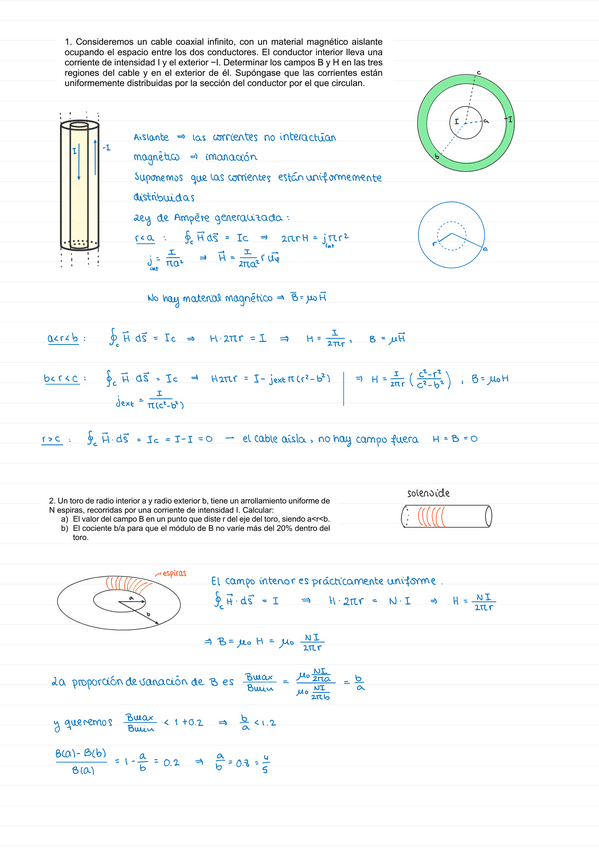 1. Consideremos un cable coaxial infinito, con un material magnético aislante
ocupando el espacio entre los dos conductores. El conductor interior lleva una
corriente de intensidad I y el exterior −I. Determinar los campos B y H en las tres
regiones del cable y en el exterior de él. Supóngase que las corrientes están
uniformemente distribuidas por la sección del conductor por el que circulan.
c
I
a
-I
b
I
-I
Aislante ⇒ las corrientes no interactúan
magnético ⇒ imanación
Suponemos que las corrientes están uniformemente
distribuidas
Ley de Ampère generalizada:
r<a : ∮c H⃗ ds⃗ = Ic ⇒ 2πrH = j_int πr²
j_int = I/πa² ⇒ H⃗ = I/2πa² r u⃗φ
r
a
No hay material magnético ⇒ B⃗ = μ₀H⃗
a<r<b : ∮c H⃗ ds⃗ = Ic ⇒ H·2πr = I ⇒ H = I/2πr, B = μH⃗
b<r<c : ∮c H⃗ ds⃗ = Ic ⇒ H2πr = I - jext π(r²-b²) ⇒ H = I/2πr (c²-r²/c²-b²), B = μ₀H
jext = I/π(c²-b²)
r>c : ∮c H⃗·ds⃗ = Ic = I-I = 0 — el cable aísla, no hay campo fuera H = B = 0
2. Un toro de radio interior a y radio exterior b, tiene un arrollamiento uniforme de
N espiras, recorridas por una corriente de intensidad I. Calcular:
a) El valor del campo B en un punto que diste r del eje del toro, siendo a<r<b.
b) El cociente b/a para que el módulo de B no varíe más del 20% dentro del
toro.
solenoide
espiras
a
b
El campo interior es prácticamente uniforme.
∮c H⃗·ds⃗ = I ⇒ H·2πr = N·I ⇒ H = NI/2πr
⇒ B = μ₀ H = μ₀ NI/2πr
La proporción de variación de B es Bmax/Bmin = μ₀ NI/2πa / μ₀ NI/2πb = b/a
y queremos Bmax/Bmin < 1+0.2 ⇒ b/a < 1.2
B(a)-B(b)/B(a) = 1 - a/b = 0.2 ⇒ a/b = 0.8 = 4/5